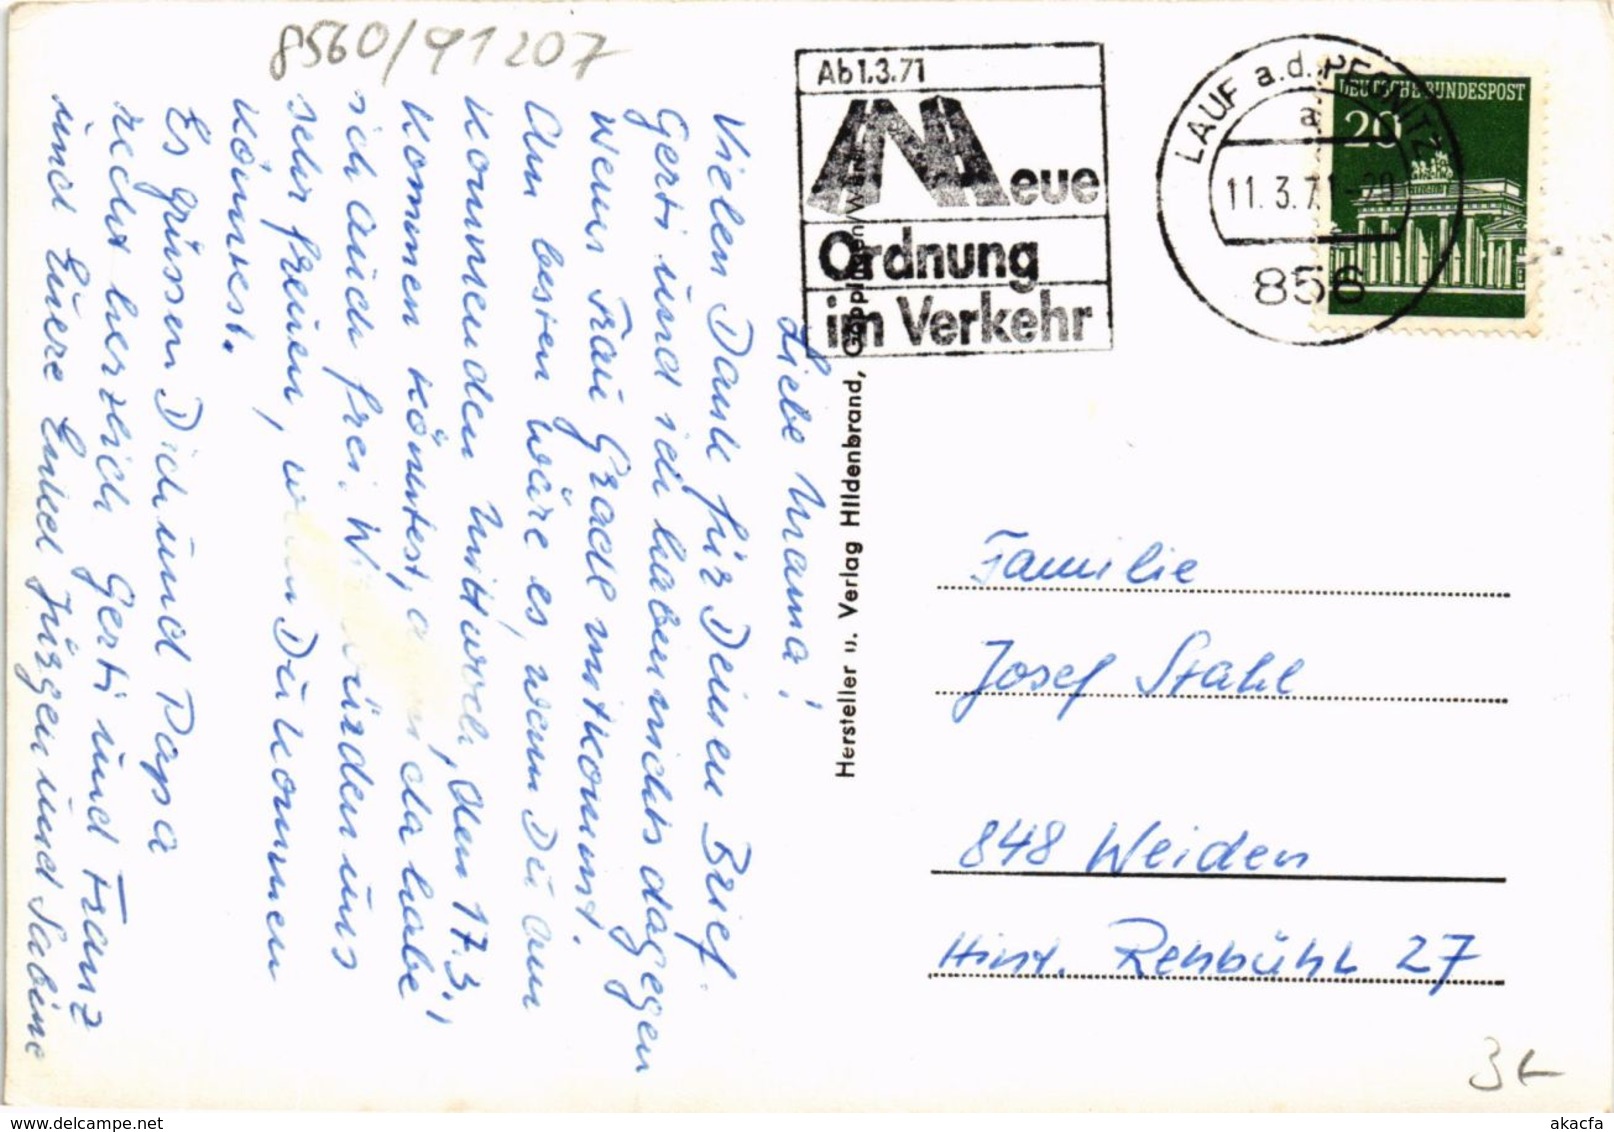 8560/91207
Ab 1.3.71
Neue
Ordnung
im Verkehr
LAUF a.d. PEGNITZ
a
11. 3. 71-20
856
DEUTSCHE BUNDESPOST
20
Liebe Mama!
Vielen Dank für Deinen Brief.
Gerti und ich haben nichts dagegen
wenn Frau Gradl mitkommt.
Am besten wäre es, wenn Du am
kommenden Mittwoch, den 17.3.,
kommen könntest, da habe
ich auch frei. Wir würden uns
sehr freuen, wenn Du kommen
könntest.
Es grüssen Dich und Papa
recht herzlich Gerti und Franz
und Euere Enkel Jürgen und Sabine
Hersteller u. Verlag Hildenbrand, Göppingen/Württ
Familie
Josef Stahl
848 Weiden
Hint. Rehbühl 27
akacfa